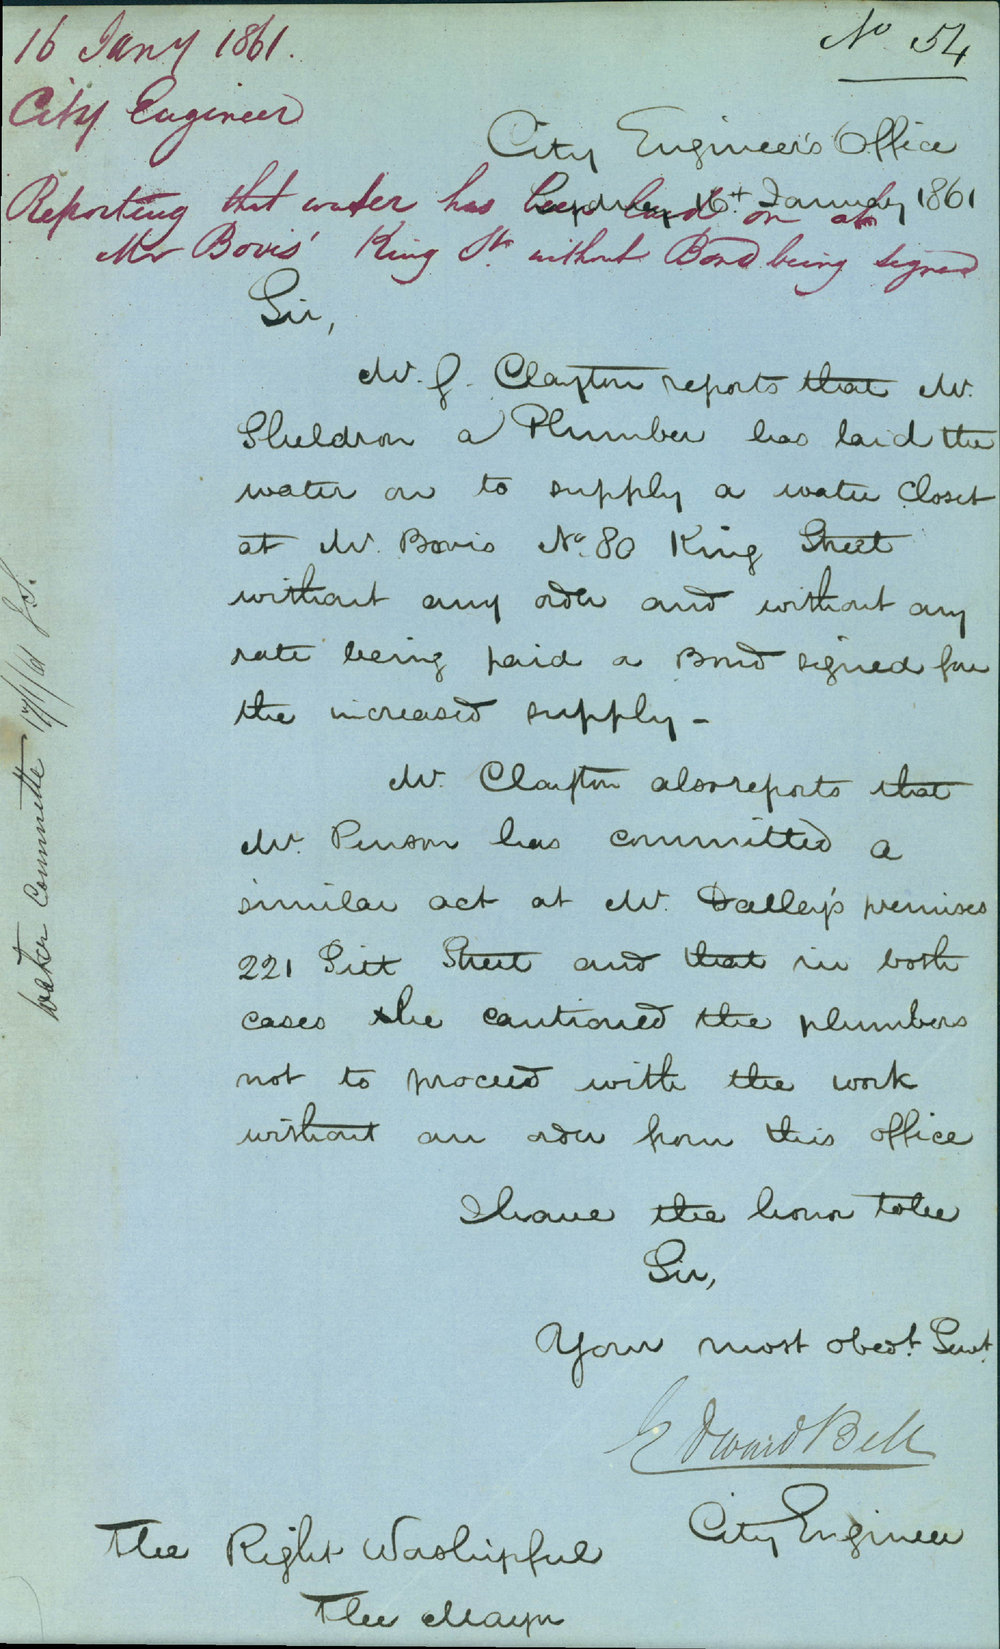 16 Jany 1861.
City Engineer
Reporting that water has been laid on at
Mr Bovis' King St. without Bond being signed
No 54
City Engineer's Office
Sydney 16t January 1861
Sir,
Mr. J. Clayton reports that Mr.
Sheldron a Plumber has laid the
water on to supply a water Closet
at Mr. Bovis No. 80 King Street
without any order and without any
rate being paid a Bond signed for
the increased supply -
Mr. Clayton also reports that
Mr. Penson has committed a
similar act at Mr. Dalley's premises
221 Pitt Street and that in both
cases he cautioned the plumbers
not to proceed with the work
without an order from this office
I have the honor to be
Sir,
Your most obedt. Servt.
Edward Bell
City Engineer
The Right Worshipful
The Mayor
Water Committee 17/1/61